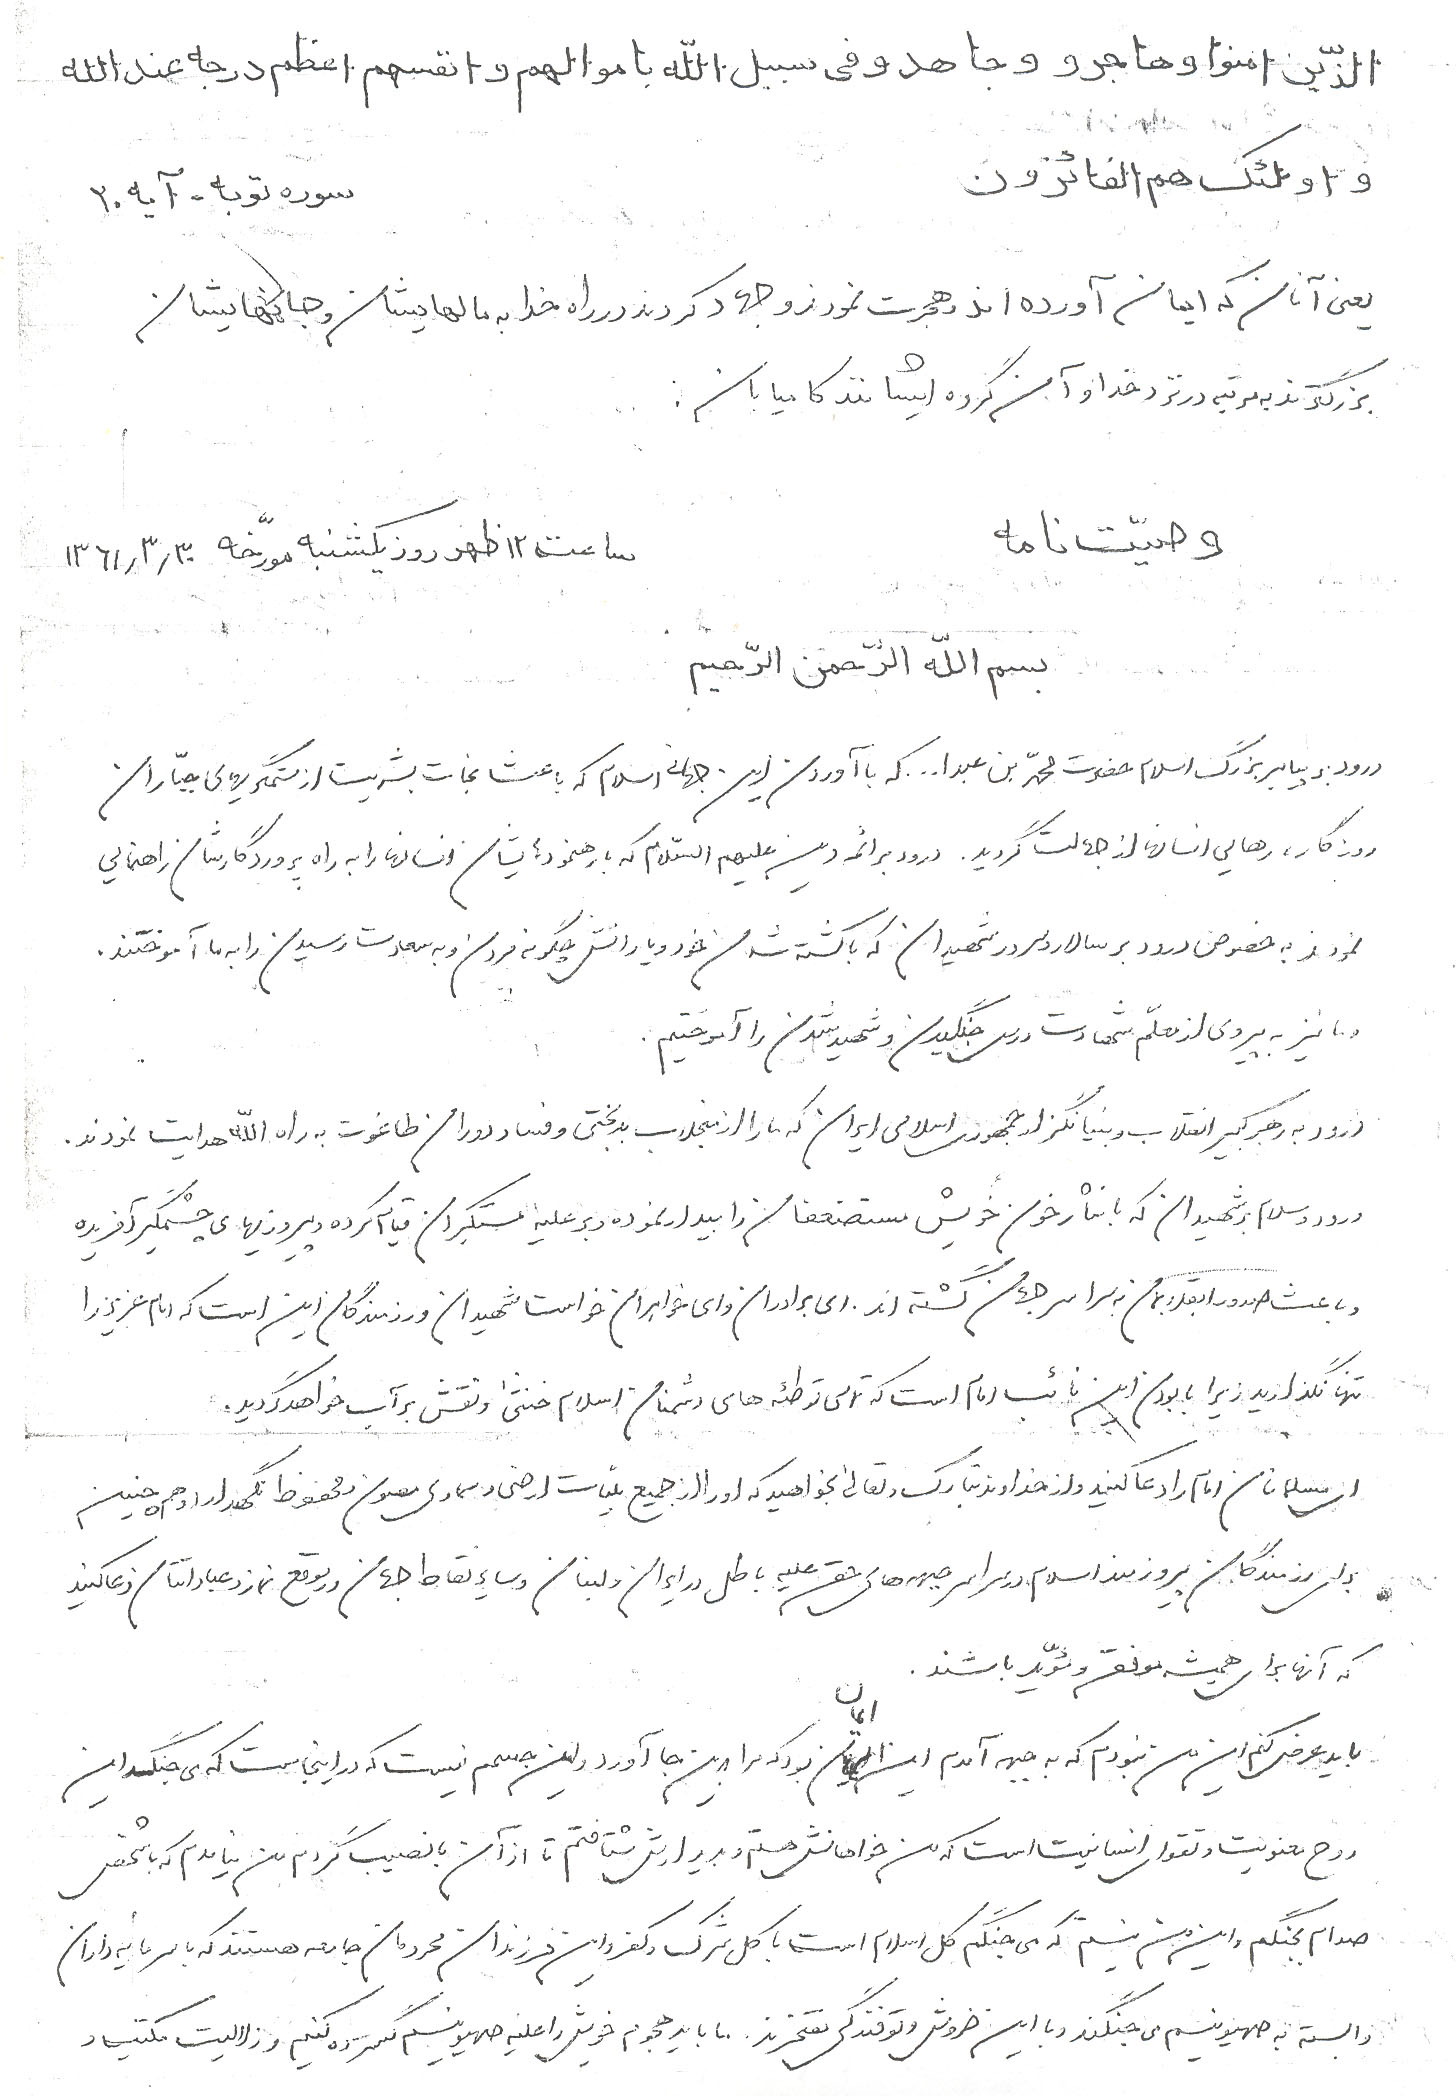 الذّین امنوا و هاجرو و جاهدو فی سبیل اللّه باموالهم و انفسهم اعظم درجه عند الله
و اولئک هم الفائزون
سوره توبه - آیه ۲۰
یعنی آنان که ایمان آورده اند و هجرت نمودند و جهاد کردند در راه خدا به مالهایشان و جانهایشان
بزرگترند به مرتبه در نزد خدا و آن گروه ایشانند کامیابان :
وصیّت نامه
ساعت ۱۲ ظهر روز یکشنبه مورّخه ۱۳۶۱٫۳٫۳۰
بسم اللّه الرّحمن الرّحیم
درود بر پیامبر بزرگ اسلام حضرت محمّد بن عبدا... که با آوردن این جهانی اسلام که باعث نجات بشریت از ستمگریهای جبّاران
روزگار، رهایی انسانها از جهالت گردید. درود بر ائمه دین علیهم السّلام که با رهنمودهایشان انسانها را به راه پروردگارشان راهنمایی
نمودند به خصوص درود بر سالار و سرور شهیدان که با کشته شدن خود و یارانش چگونه مردن و به سعادت رسیدن را به ما آموختند.
و ما نیز به پیروی از معلّم شهادت درس جنگیدن و شهید شدن را آموختیم.
درود به رهبر کبیر انقلاب و بنیانگزار جمهوری اسلامی ایران که ما را از منجلاب بدبختی و فساد دوران طاغوت به راه اللّه هدایت نمودند.
درود و سلام بر شهیدان که با نثار خون خویش مستضعفان را بیدار نموده و بر علیه مستکبران قیام کرده و پیروزیهای چشمگیر آفریده
و باعث صدور انقلابمان به سراسر جهان گشته اند. ای برادران و ای خواهران خواست شهیدان و رزمندگان این است که امام عزیز را
تنها نگذارید زیرا با بودن این نائب امام است که تمامی توطئه های دشمنان اسلام خنثی و نقش بر آب خواهد گردید.
ای مسلمانان امام را دعا کنید و از خداوند تبارک و تعالی بخواهید که او را از جمیع بلیّات ارضی و سماوی مصون و محفوظ نگهدارد و همچنین
برای رزمندگان پیروزمند اسلام در سراسر جبهه های حق علیه باطل در ایران و لبنان و سایر نقاط جهان در موقع نماز و عباداتتان دعا کنید
که آنها برای همیشه موفق و مؤیّد باشند.
باید عرض کنم این من نبودم که به جبهه آمدم این ایمان بود که مرا به این جا آورد و این جسمم نیست که در اینجاست که می جنگد این
روح معنویت و تقوای انسانیت است که من خواهانش هستم و به دیدارش شتافتم تا از آن با نصیب گردم من نیامدم که با شخص
صدام بجنگم و این من نیستم که می جنگم کل اسلام است با کل شرک و کفر و این فرزندان محرومان جامعه هستند که با سرمایه داران
وابسته به صهیونیسم می جنگند و با این خروش و توفندگی مفتخرند. ما باید هجوم خویش را علیه صهیونیسم گسترده کنیم و زلالیت مکتب